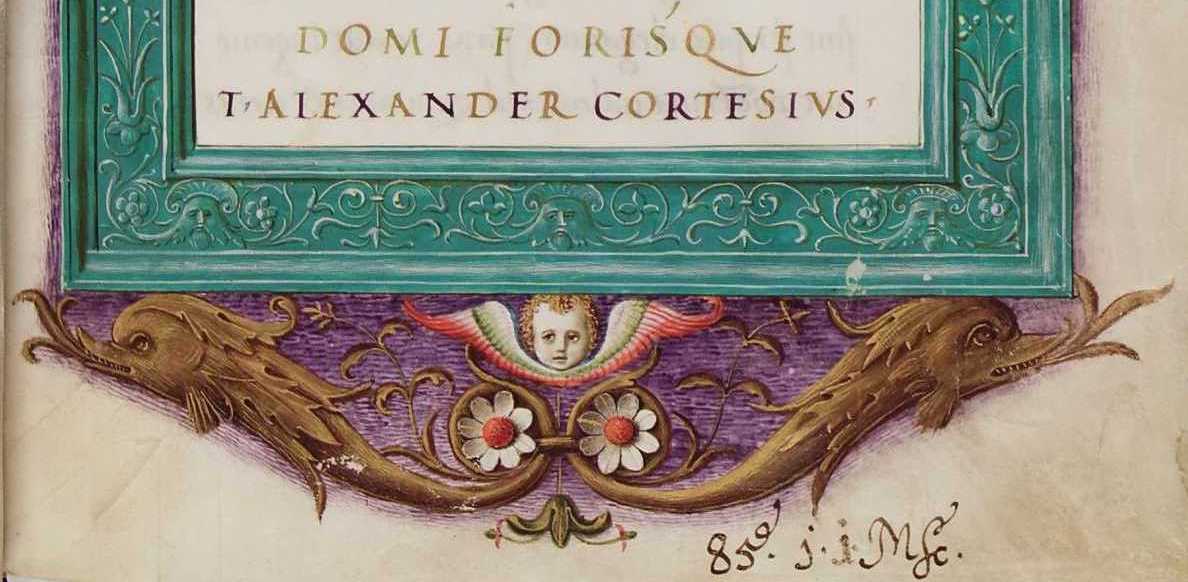 DOMI FORISQVE
T. ALEXANDER CORTESIVS.
85ª. j. i. Msc.